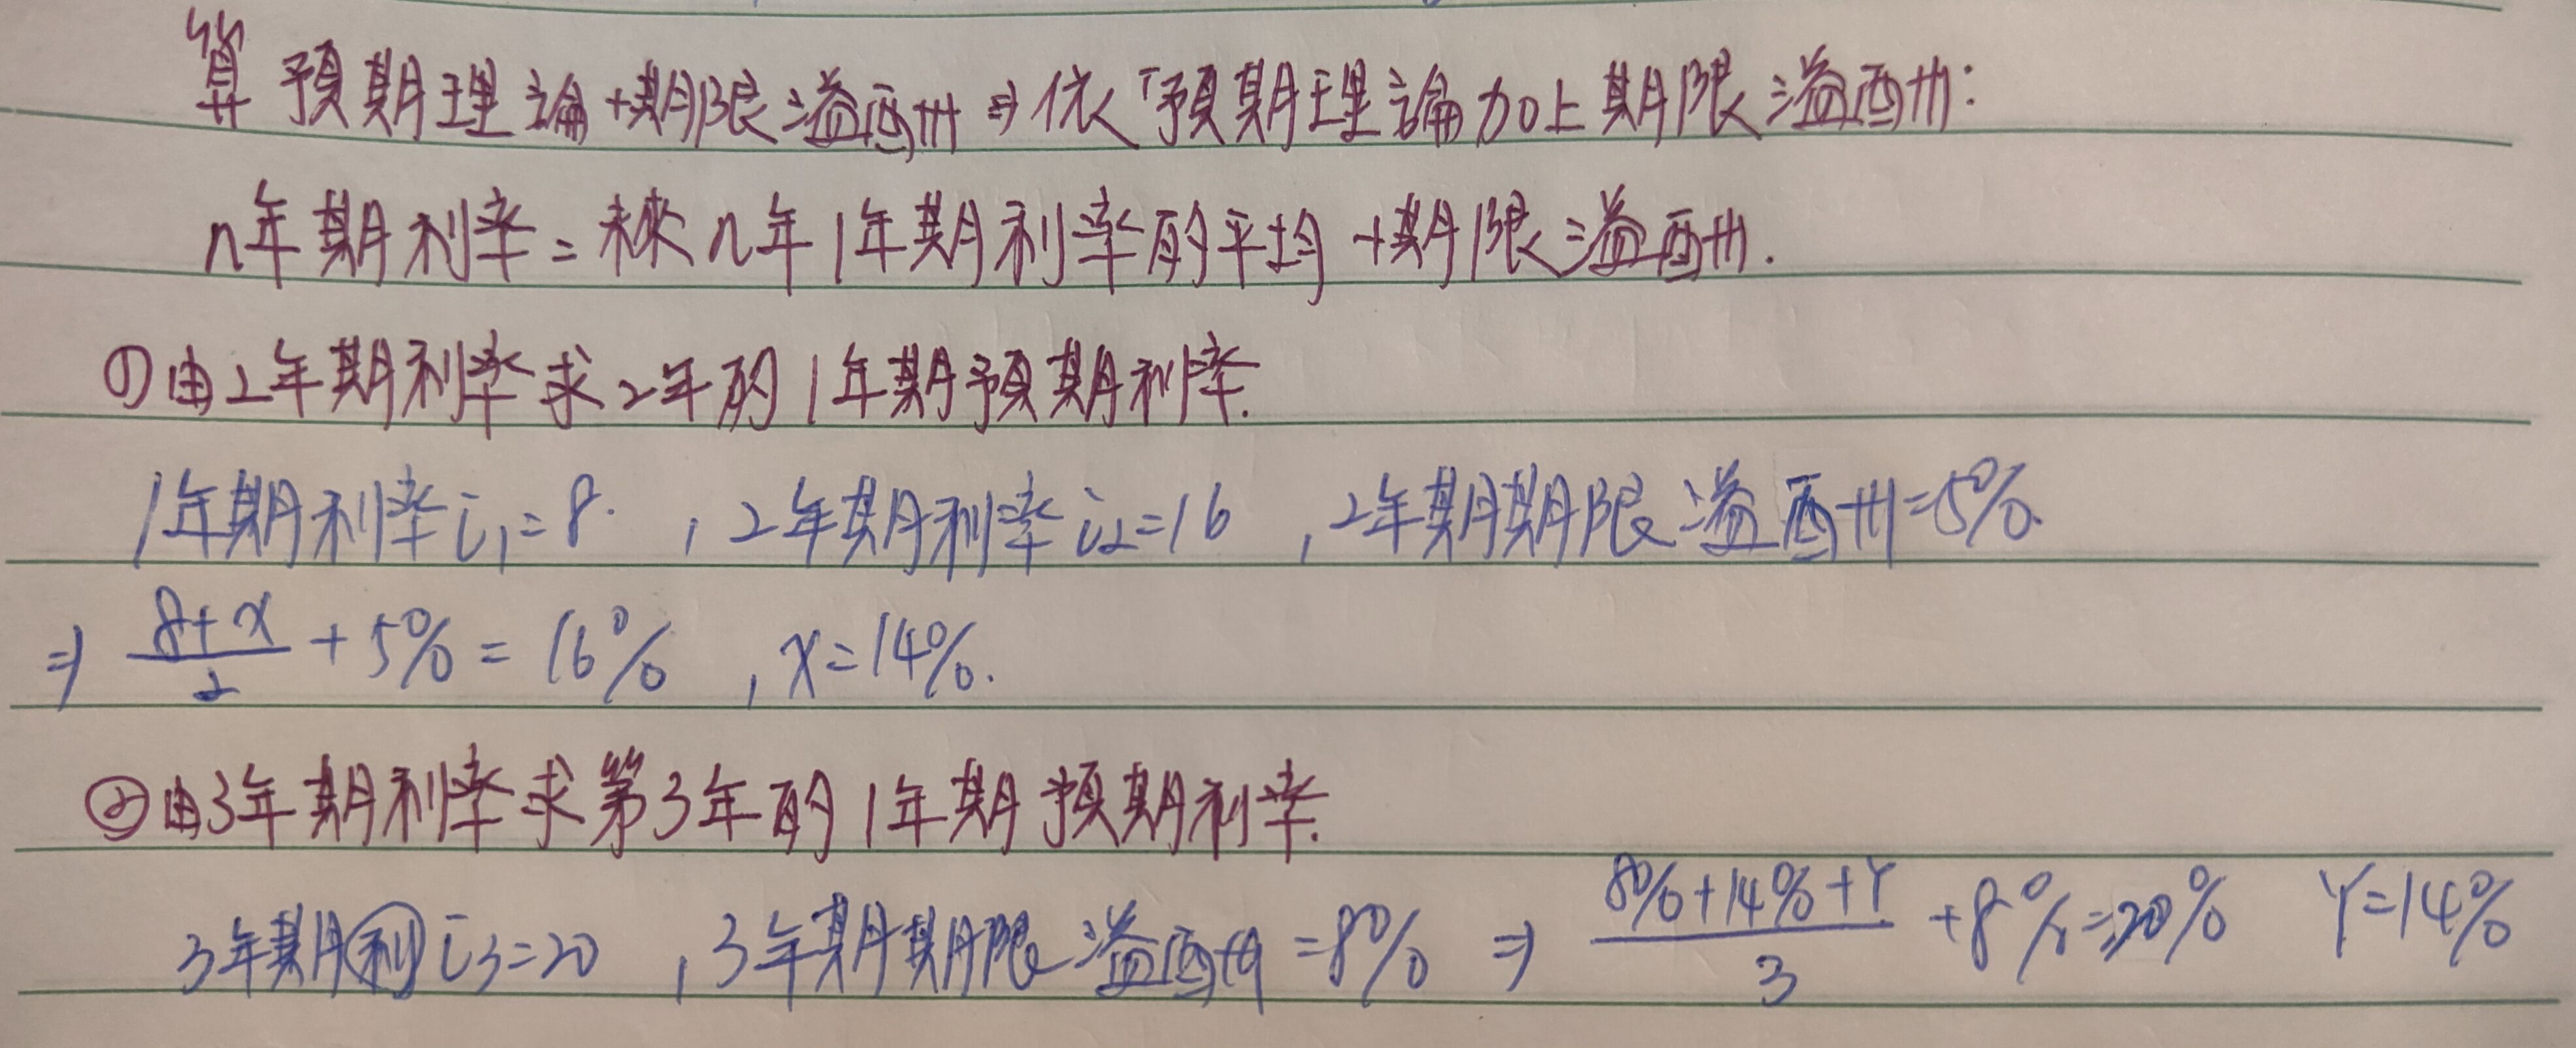 算 預期理論+期限溢酬⇒依「預期理論加上期限溢酬:
n年期利率=未來n年1年期利率的平均+期限溢酬.
①由2年期利率求2年的1年期預期利率.
1年期利率i₁=8. , 2年期利率i₂=16 , 2年期期限溢酬=5%.
⇒ (8+x)/2 + 5% = 16% , x=14%.
②由3年期利率求第3年的1年期預期利率.
3年期利 i₃=20 , 3年期期限溢酬=8% ⇒ (8%+14%+Y)/3 +8%=20% Y=14%